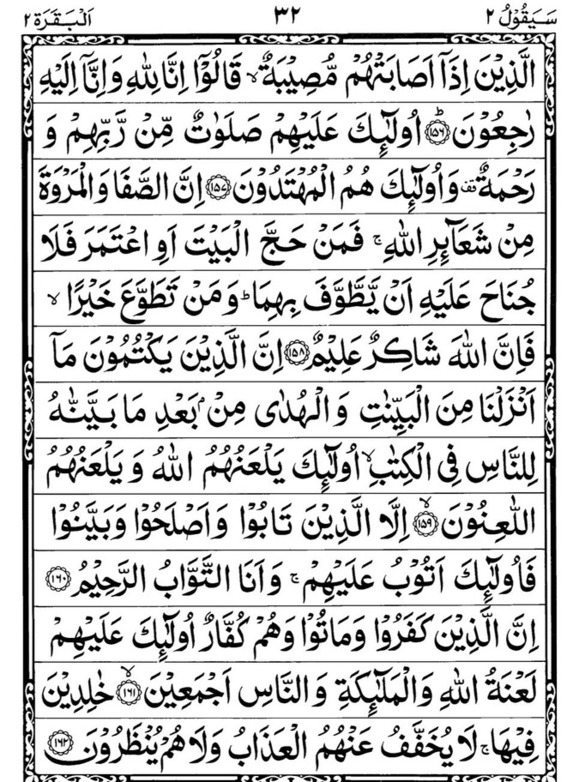 سَيَقُوْلُ ٢ ٣٢ اَلْبَقَرَة ٢
الَّذِيْنَ اِذَاۤ اَصَابَتْهُمْ مُّصِيْبَةٌ ۙ قَالُوْۤا اِنَّا لِلّٰهِ وَاِنَّاۤ اِلَيْهِ
رٰجِعُوْنَ ؕ‏﴿۱۵۶﴾ اُولٰٓئِكَ عَلَيْهِمْ صَلَوٰتٌ مِّنْ رَّبِّهِمْ وَ
رَحْمَةٌ ۟ وَاُولٰٓئِكَ هُمُ الْمُهْتَدُوْنَ ﴿۱۵۷﴾ اِنَّ الصَّفَا وَالْمَرْوَةَ
مِنْ شَعَآئِرِ اللّٰهِ ۚ فَمَنْ حَجَّ الْبَيْتَ اَوِ اعْتَمَرَ فَلَا
جُنَاحَ عَلَيْهِ اَنْ يَّطَّوَّفَ بِهِمَا ؕ وَمَنْ تَطَوَّعَ خَيْرًا ۙ
فَاِنَّ اللّٰهَ شَاكِرٌ عَلِيْمٌ ﴿۱۵۸﴾ اِنَّ الَّذِيْنَ يَكْتُمُوْنَ مَاۤ
اَنْزَلْنَا مِنَ الْبَيِّنٰتِ وَالْهُدٰى مِنْۢ بَعْدِ مَا بَيَّنّٰهُ
لِلنَّاسِ فِى الْكِتٰبِ ۙ اُولٰٓئِكَ يَلْعَنُهُمُ اللّٰهُ وَيَلْعَنُهُمُ
اللّٰعِنُوْنَ ۙ‏﴿۱۵۹﴾ اِلَّا الَّذِيْنَ تَابُوْا وَاَصْلَحُوْا وَبَيَّنُوْا
فَاُولٰٓئِكَ اَتُوْبُ عَلَيْهِمْ ۚ وَاَنَا التَّوَّابُ الرَّحِيْمُ ﴿۱۶۰﴾
اِنَّ الَّذِيْنَ كَفَرُوْا وَمَاتُوْا وَهُمْ كُفَّارٌ اُولٰٓئِكَ عَلَيْهِمْ
لَعْنَةُ اللّٰهِ وَالْمَلٰٓئِكَةِ وَالنَّاسِ اَجْمَعِيْنَ ۙ‏﴿۱۶۱﴾ خٰلِدِيْنَ
فِيْهَا ۚ لَا يُخَفَّفُ عَنْهُمُ الْعَذَابُ وَلَا هُمْ يُنْظَرُوْنَ ﴿۱۶۲﴾